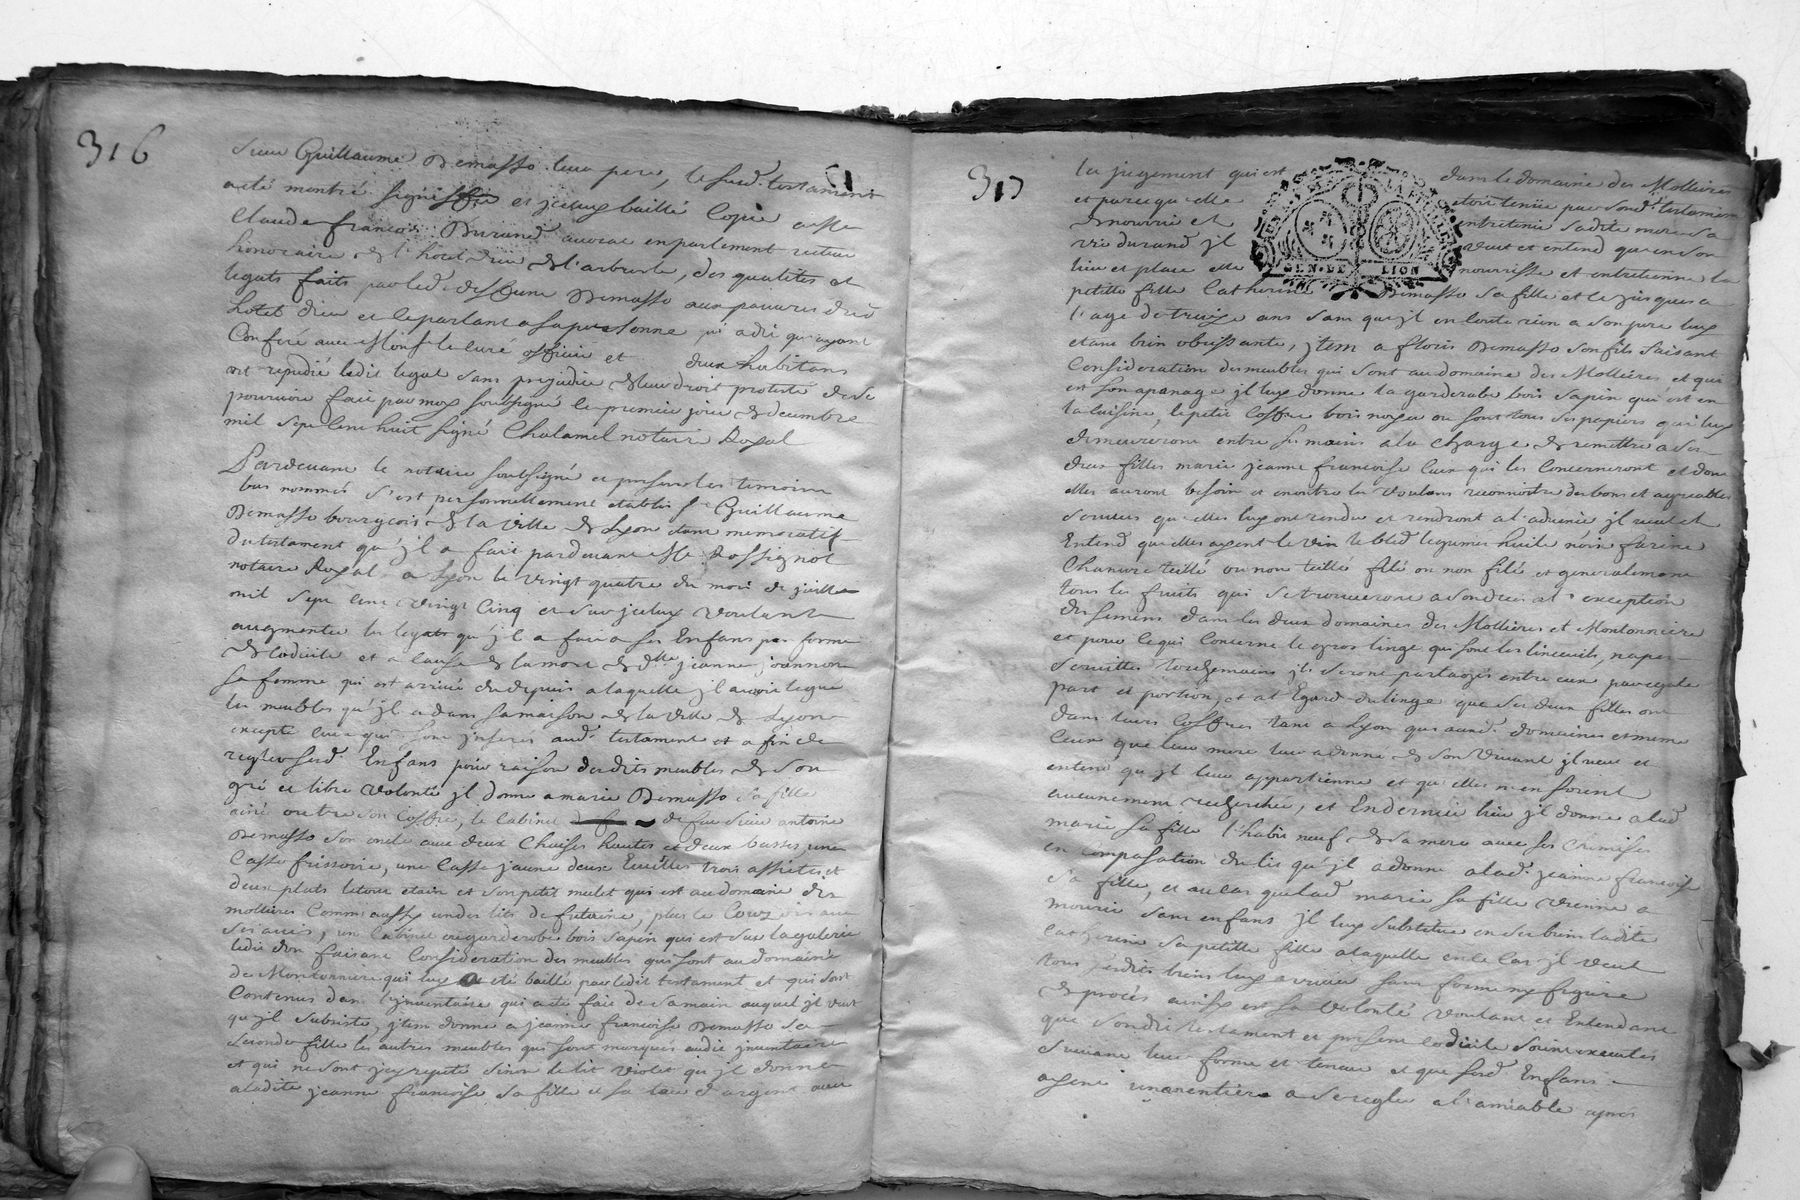 316
Sieur Guillaume Demasso leur pere, le susd. testament
a eté montré signé et jceluy baillé Copie a Me
Claude francois Durand avocat en parlement recteur
honoraire de l'hotel dieu de l'arbresle, des qualités et
legats faits par led. deffunt Demasso aux pauvres dud.
hotel dieu et le parlant a sa personne qui a dit qu'ayant
Conferé avec Monsr le curé officier et deux habitans
ont repudié ledit legat sans prejudice de leur droit protesté de se
pourvoir fait par moy soussigné le premier jour de decembre
mil sept cent huit signé Chalamel notaire Royal
Pardevant le notaire soussigné et presents les temoins
bas nommés s'est personnellement etabli Sr Guillaume
Demasso bourgeois de la ville de Lyon etant memoratif
du testament qu'jl a fait pardevant Me Rossignol
notaire Royal a Lyon le vingt quatre du mois de juillet
mil sept cent vingt Cinq et sur jceluy voulant
augmenter les legats qu'jl a fait a ses Enfans par forme
de codicile et a cause de la mort de dlle jeanne joannon
sa femme qui est arrivée du depuis a laquelle jl avoit legué
les meubles qu'jl a dans sa maison de la ville de Lyon
excepté ceux qui sont jnserés aud. testament et a fin de
regler sesd. Enfans pour raison desdits meubles de son
gré et libre volonté jl donne a marie Demasso sa fille
ainé outre son Coffre, le Cabinet de feu Sieur antoine
Demasso son oncle avec deux Chaises hautes et deux basses, une
Casse frissoire, une Casse jaune deux Ecuelles trois assietes et
deux plats le tout etain et son petit mulet qui est au domaine des
molieres Comme aussy un des lits de futaine, plus le
un Cabinet ou garderobe bois sapin qui est sur la galerie
ledit don faisant Consideration des meubles qui sont au domaine
de Montonniere qui luy a eté baillé par ledit testament et qui sont
Contenus dans l'jnventaire qui a eté fait de sa main auquel jl veut
qu'jl subsiste, jtem donne a jeanne francoise Demasso sa
seconde fille les autres meubles qui sont marqués audit jnventaire
et qui ne sont jcy repeté sinon le lit violet qu'jl donne
a ladite jeanne francoise sa fille et sa tasse d'argent avec
317
les jugement qui est dans le domaine des Mollieres
et parce qu'elle etoit tenue par sond. testament
de nourrir et entretenir sadite mere sa
vie durand jl veut et entend qu'en son
lieu et place elle nourrisse et entretienne la
GEN. DE LION
petitte fille Catherine Demasso sa fille et ce jusques a
l'age de treize ans sans qu'jl en coute rien a son pere luy
etant bien obeissante, jtem a floris Demasso son fils faisant
Consideration des meubles qui sont au domaine des Mollieres et qui
est son apanage jl luy donne la garderobe bois sapin qui est en
la cuisine, le petit Coffre bois noyer ou sont tous ses papiers qui luy
demeureront entre ses mains a la charge de remettre a ses
deux filles marie jeanne francoise ceux qui les Concerneront et dont
elles auront besoin et en outre les voulant reconnoitre des bons et agreables
services qu'elles luy ont rendu et rendront a l'advenir jl veut et
Entend qu'elles ayent le vin le bled legumes huile noix farine
Chanvre teillé ou non teillé filé ou non filé et generalement
tous les fruits qui se trouveront a son deceds a l'exception
des semens dans les deux domaines des Mollieres et Montonniere
et pour ce qui Concerne le gros linge qui sont les linceuils, napes
serviettes touchemains jls seront partagés entre eux par egale
part et portion, et a l'Egard du linge que ses deux filles ont
dans leurs Coffres tant a Lyon que auxd. domaines et meme
Ceux que leur mere leur a donné de son vivant jl veut et
entend qu'jl leur appartienne et qu'elles n'en soient
aucunement recherchées, et En dernier lieu jl donne a lad.
marie sa fille l'habit neuf de sa mere avec ses chemises
en compasation du lit qu'jl a donné a lad. jeanne francoise
sa fille, et au cas que lad. marie sa fille vienne a
mourir sans enfans jl luy substitue en ses biens ladite
Catherine sa petitte fille a laquelle en ce Cas jl veut
tous sesdits biens luy arriver sans forme ny figure
de procés ainsy est sa volonté voulant et Entendant
que sondit testament et present codicile soient executés
suivant leur forme et teneur et que sesd. Enfans
ayent a se regler a l'amiable apres